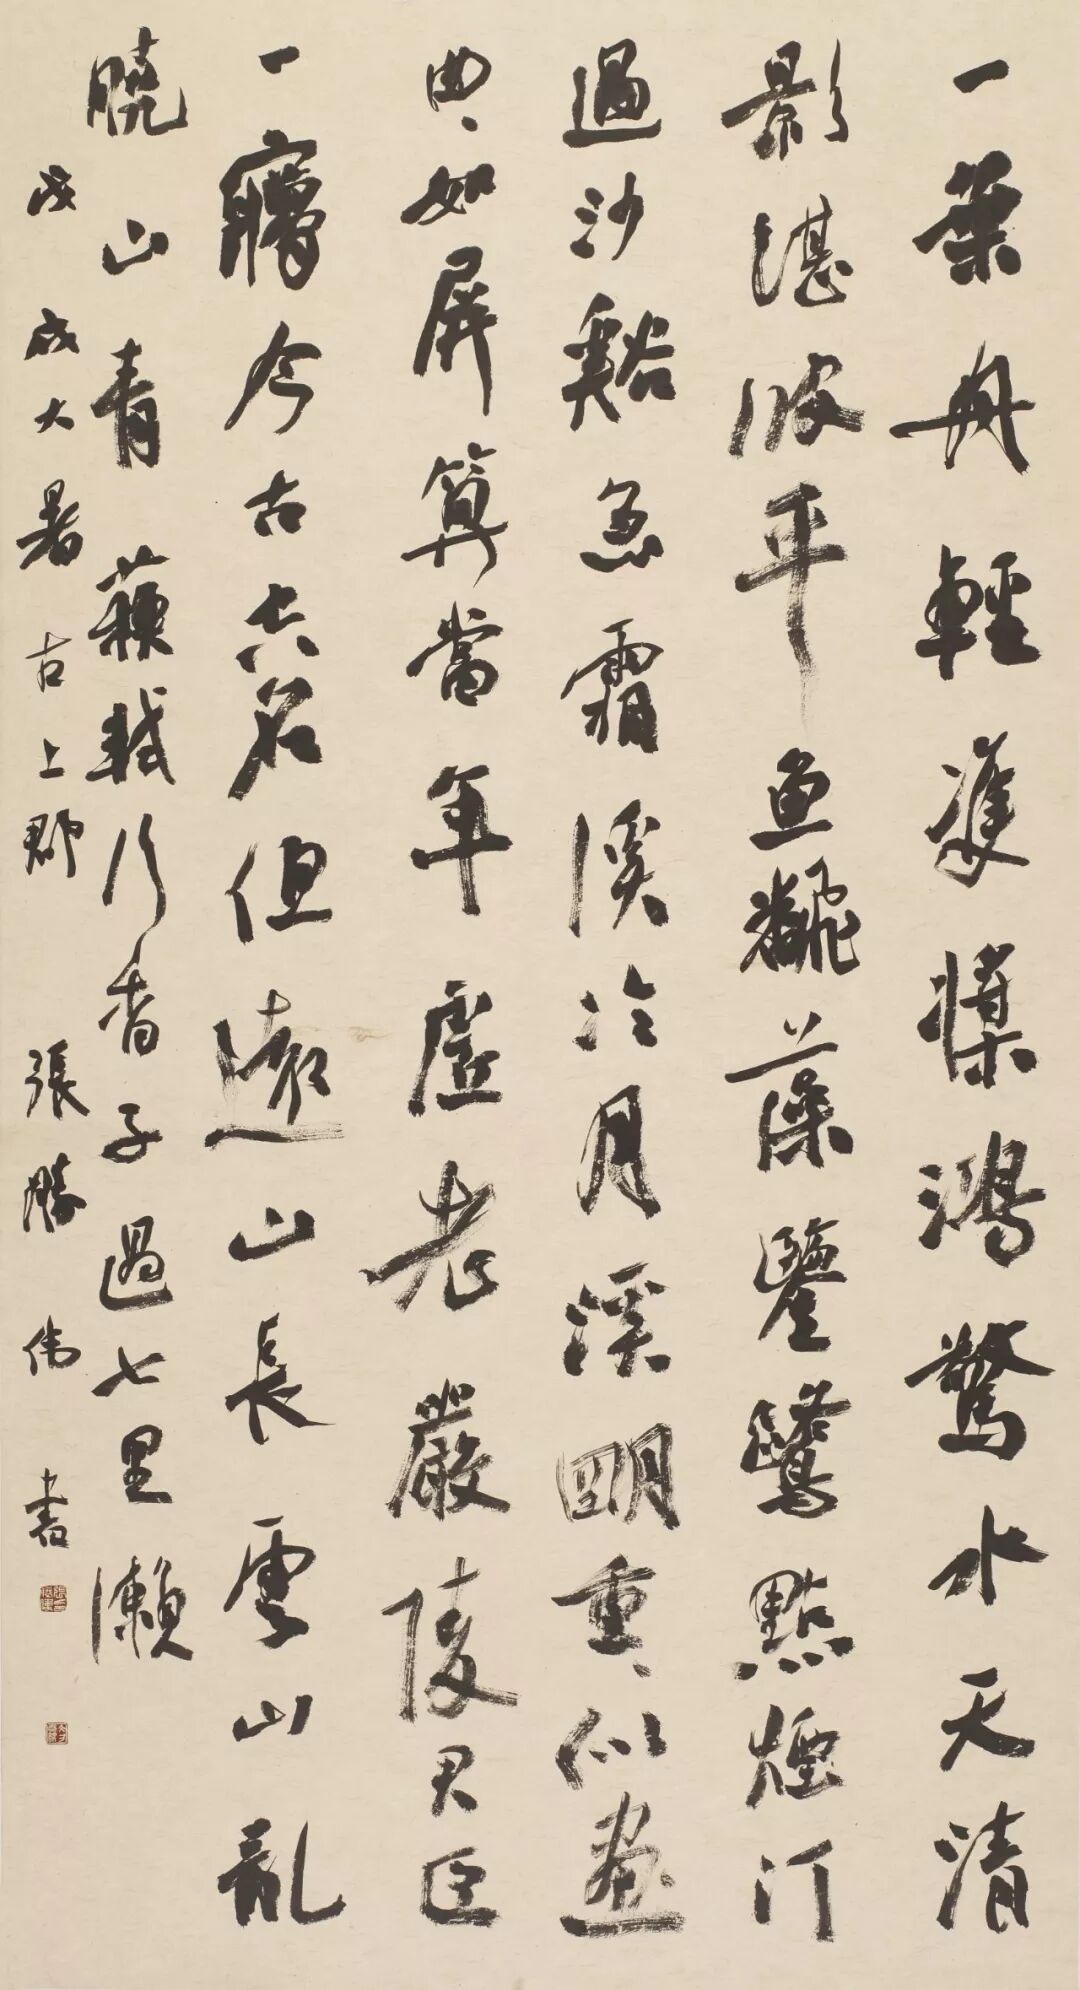 一葉舟輕雙槳鴻驚水天清
影湛波平魚飜藻鑒鷺點煙汀
過沙谿急霜溪冷月溪明重、似畫
曲、如屏算當年虛老嚴陵君臣
一夢今古空名但遠山長雲山亂
曉山青 蘇軾行香子過七里瀨
戊戌大暑 古上郡 張勝偉書